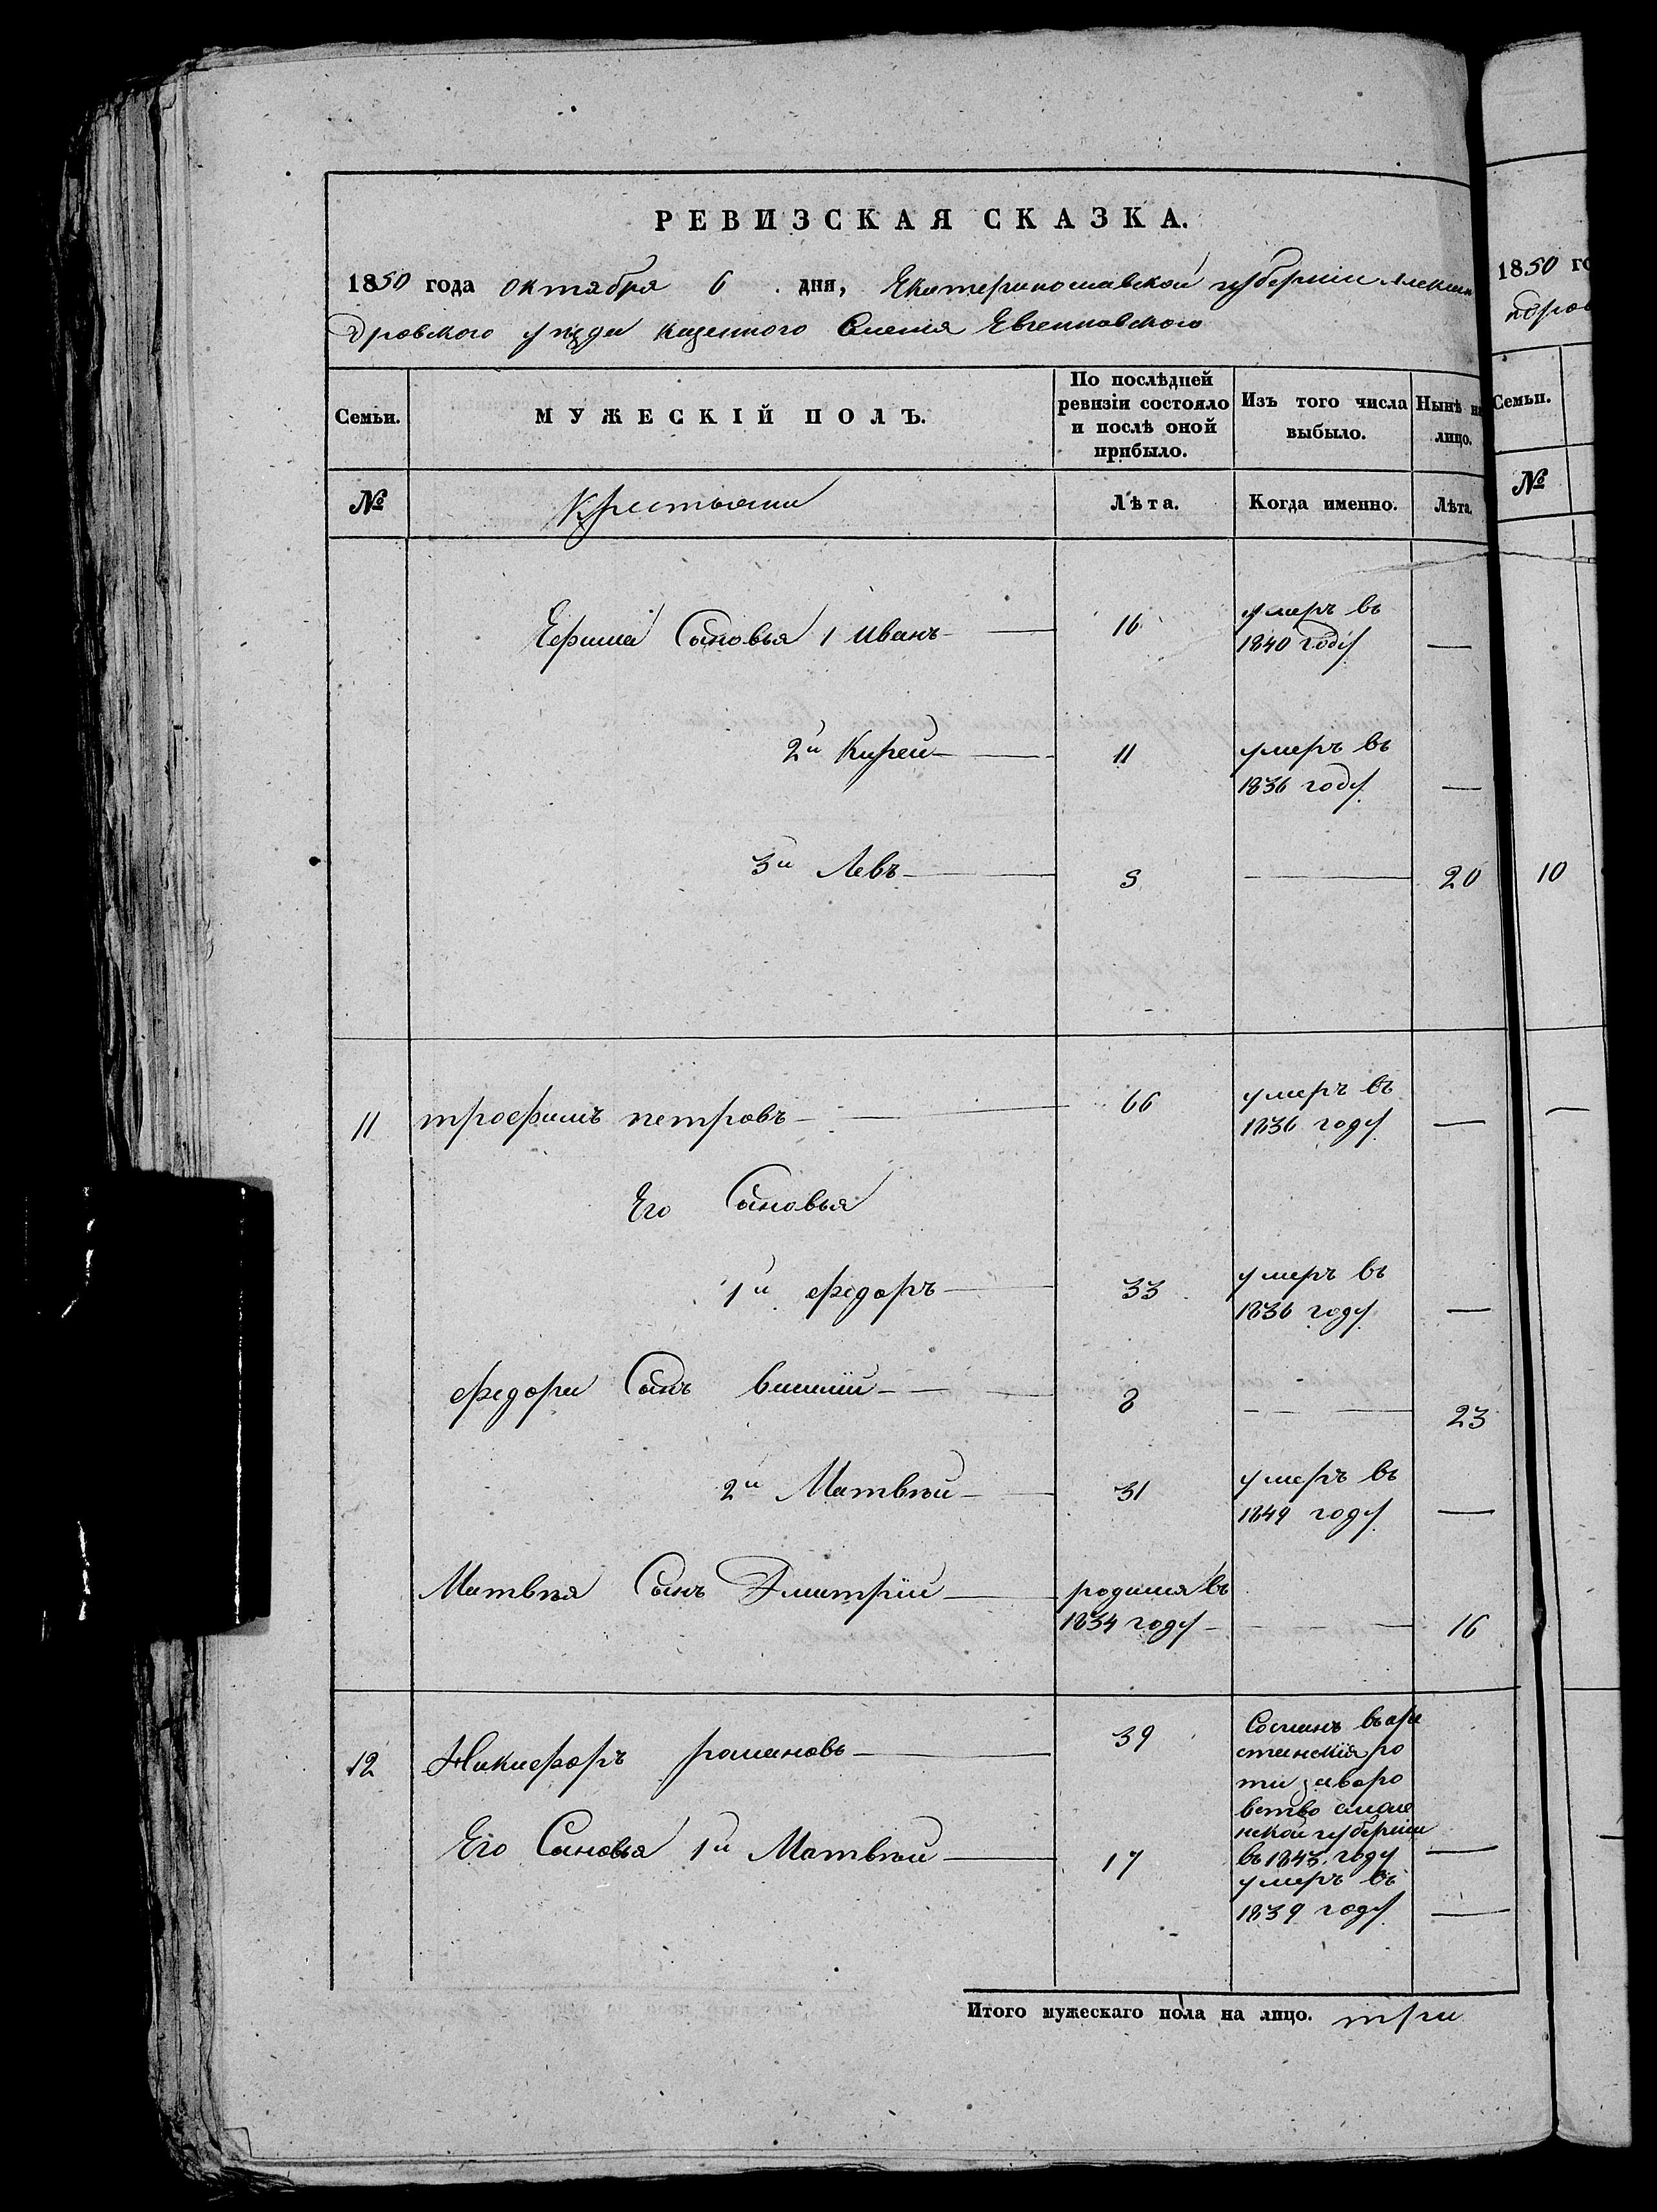 РЕВИЗСКАЯ СКАЗКА.
1850 года октября 6 дня, Екатеринославской губернии Алексан
дровского уезда казенного Селения Евгеновского
Семьи.
МУЖЕСКІЙ ПОЛЪ.
По послѣдней
ревизіи состояло
и послѣ оной
прибыло.
Изъ того числа
выбыло.
Нынѣ на
лицо.
№
Крестьяни
Лѣта.
Когда именно.
Лѣта.
Ефима Сыновья 1 Иванъ 16 умеръ въ
1840 году —
2й Кирей 11 умеръ въ
1836 году —
3й Левъ 5 — 20
11 трофимъ петровъ 66 умеръ въ
1836 году —
Его Сыновья
1й федоръ 33 умеръ въ
1836 году —
федора Сынъ 8 — 23
2й Матвѣй 31 умеръ въ
1849 году —
Матвѣя Сынъ Дмитрій родился въ
1834 году — 16
12 Никифоръ романовъ 39 Сосланъ въ аре
станския ро
ти за воро
вство смоле
нской губерніи
въ 1843 году —
Его Сыновья 1й Матвѣй 17 умеръ въ
1839 году —
Итого мужескаго пола на лицо. три
1850 го
ндров
Семьи.
№
10